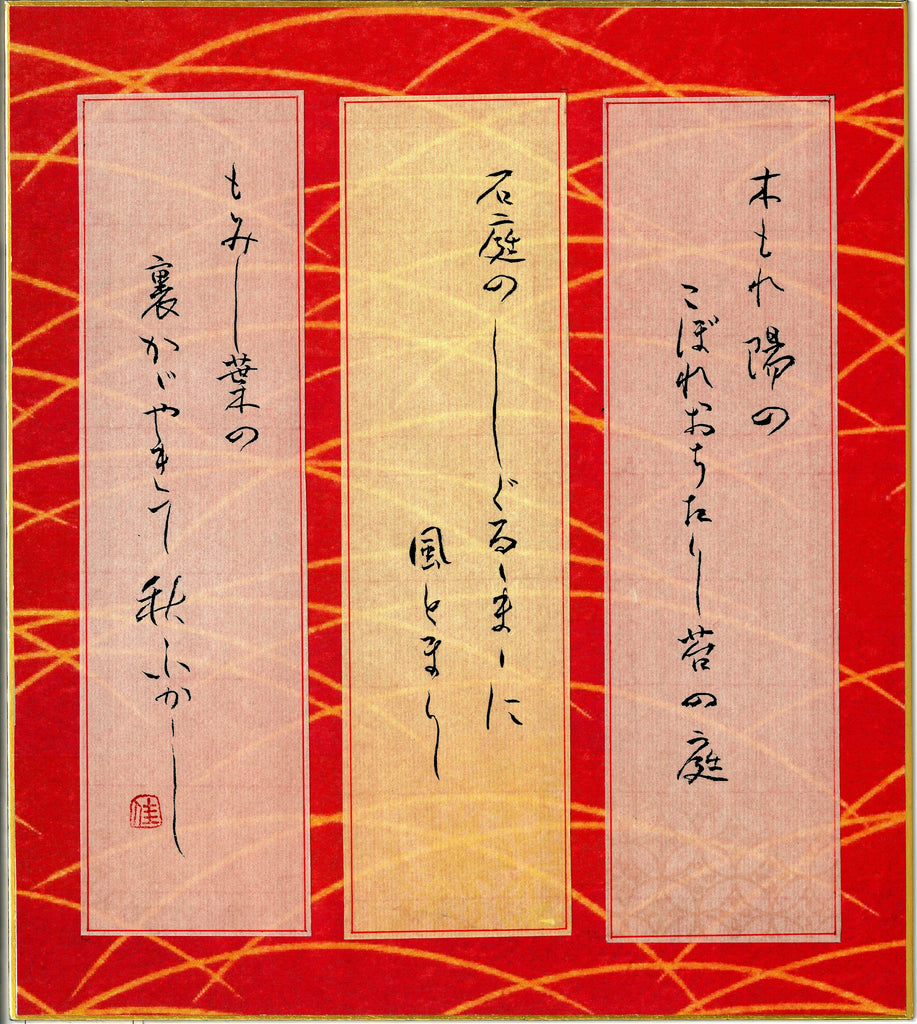 木もれ陽の
こぼれおちたり苔の庭
石庭のしぐるゝまゝに
風とまり
もみし葉の
裏かゞやきて秋ふかし
佳